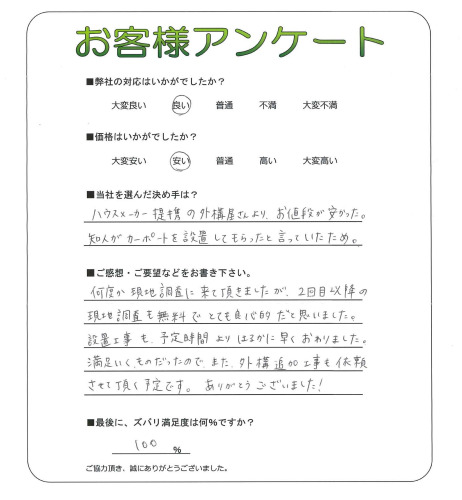 お客様アンケート
■弊社の対応はいかがでしたか？
大変良い 良い 普通 不満 大変不満
■価格はいかがでしたか？
大変安い 安い 普通 高い 大変高い
■当社を選んだ決め手は？
ハウスメーカー提携の外構屋さんより、お値段が安かった。
知人がカーポートを設置してもらったと言っていたため。
■ご感想・ご要望などをお書き下さい。
何度か現地調査に来て頂きましたが、2回目以降の
現地調査も無料でとても良心的だと思いました。
設置工事も、予定時間よりはるかに早くおわりました。
満足いくものだったので、また、外構追加工事も依頼
させて頂く予定です。ありがとうございました！
■最後に、ズバリ満足度は何%ですか？
100 %
ご協力頂き、誠にありがとうございました。